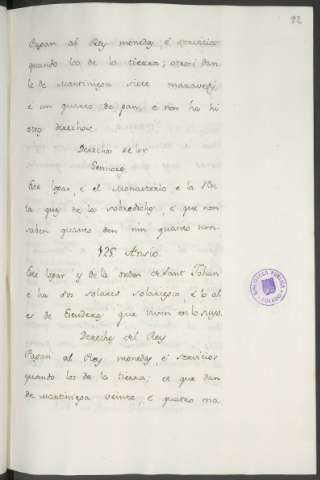 92
Pagan al Rey monedas, é servicios
quando los de la tierra; otrosi dan
le de Martiniega siete maravedis
é un quarto de pan, e non ha hi
otro derecho.
Derechos de los
Sennores
Este logar, é el Monasterio, e la
ta que de lo sobredicho, é que non
saben quanto don nin quanto non.
125 Ansio.
Este logar y de la orden de Sant Johan
e ha dos solares solariegos, é lo al
es de Genderos que viven en lo suyo.
Derechos del Rey
Pagan al Rey monedas, é servicios
quando los de la tierra; et que dan
de Martiniega veinte, é quatro ma
BIBLIOTECA PUBLICA
TOLEDO